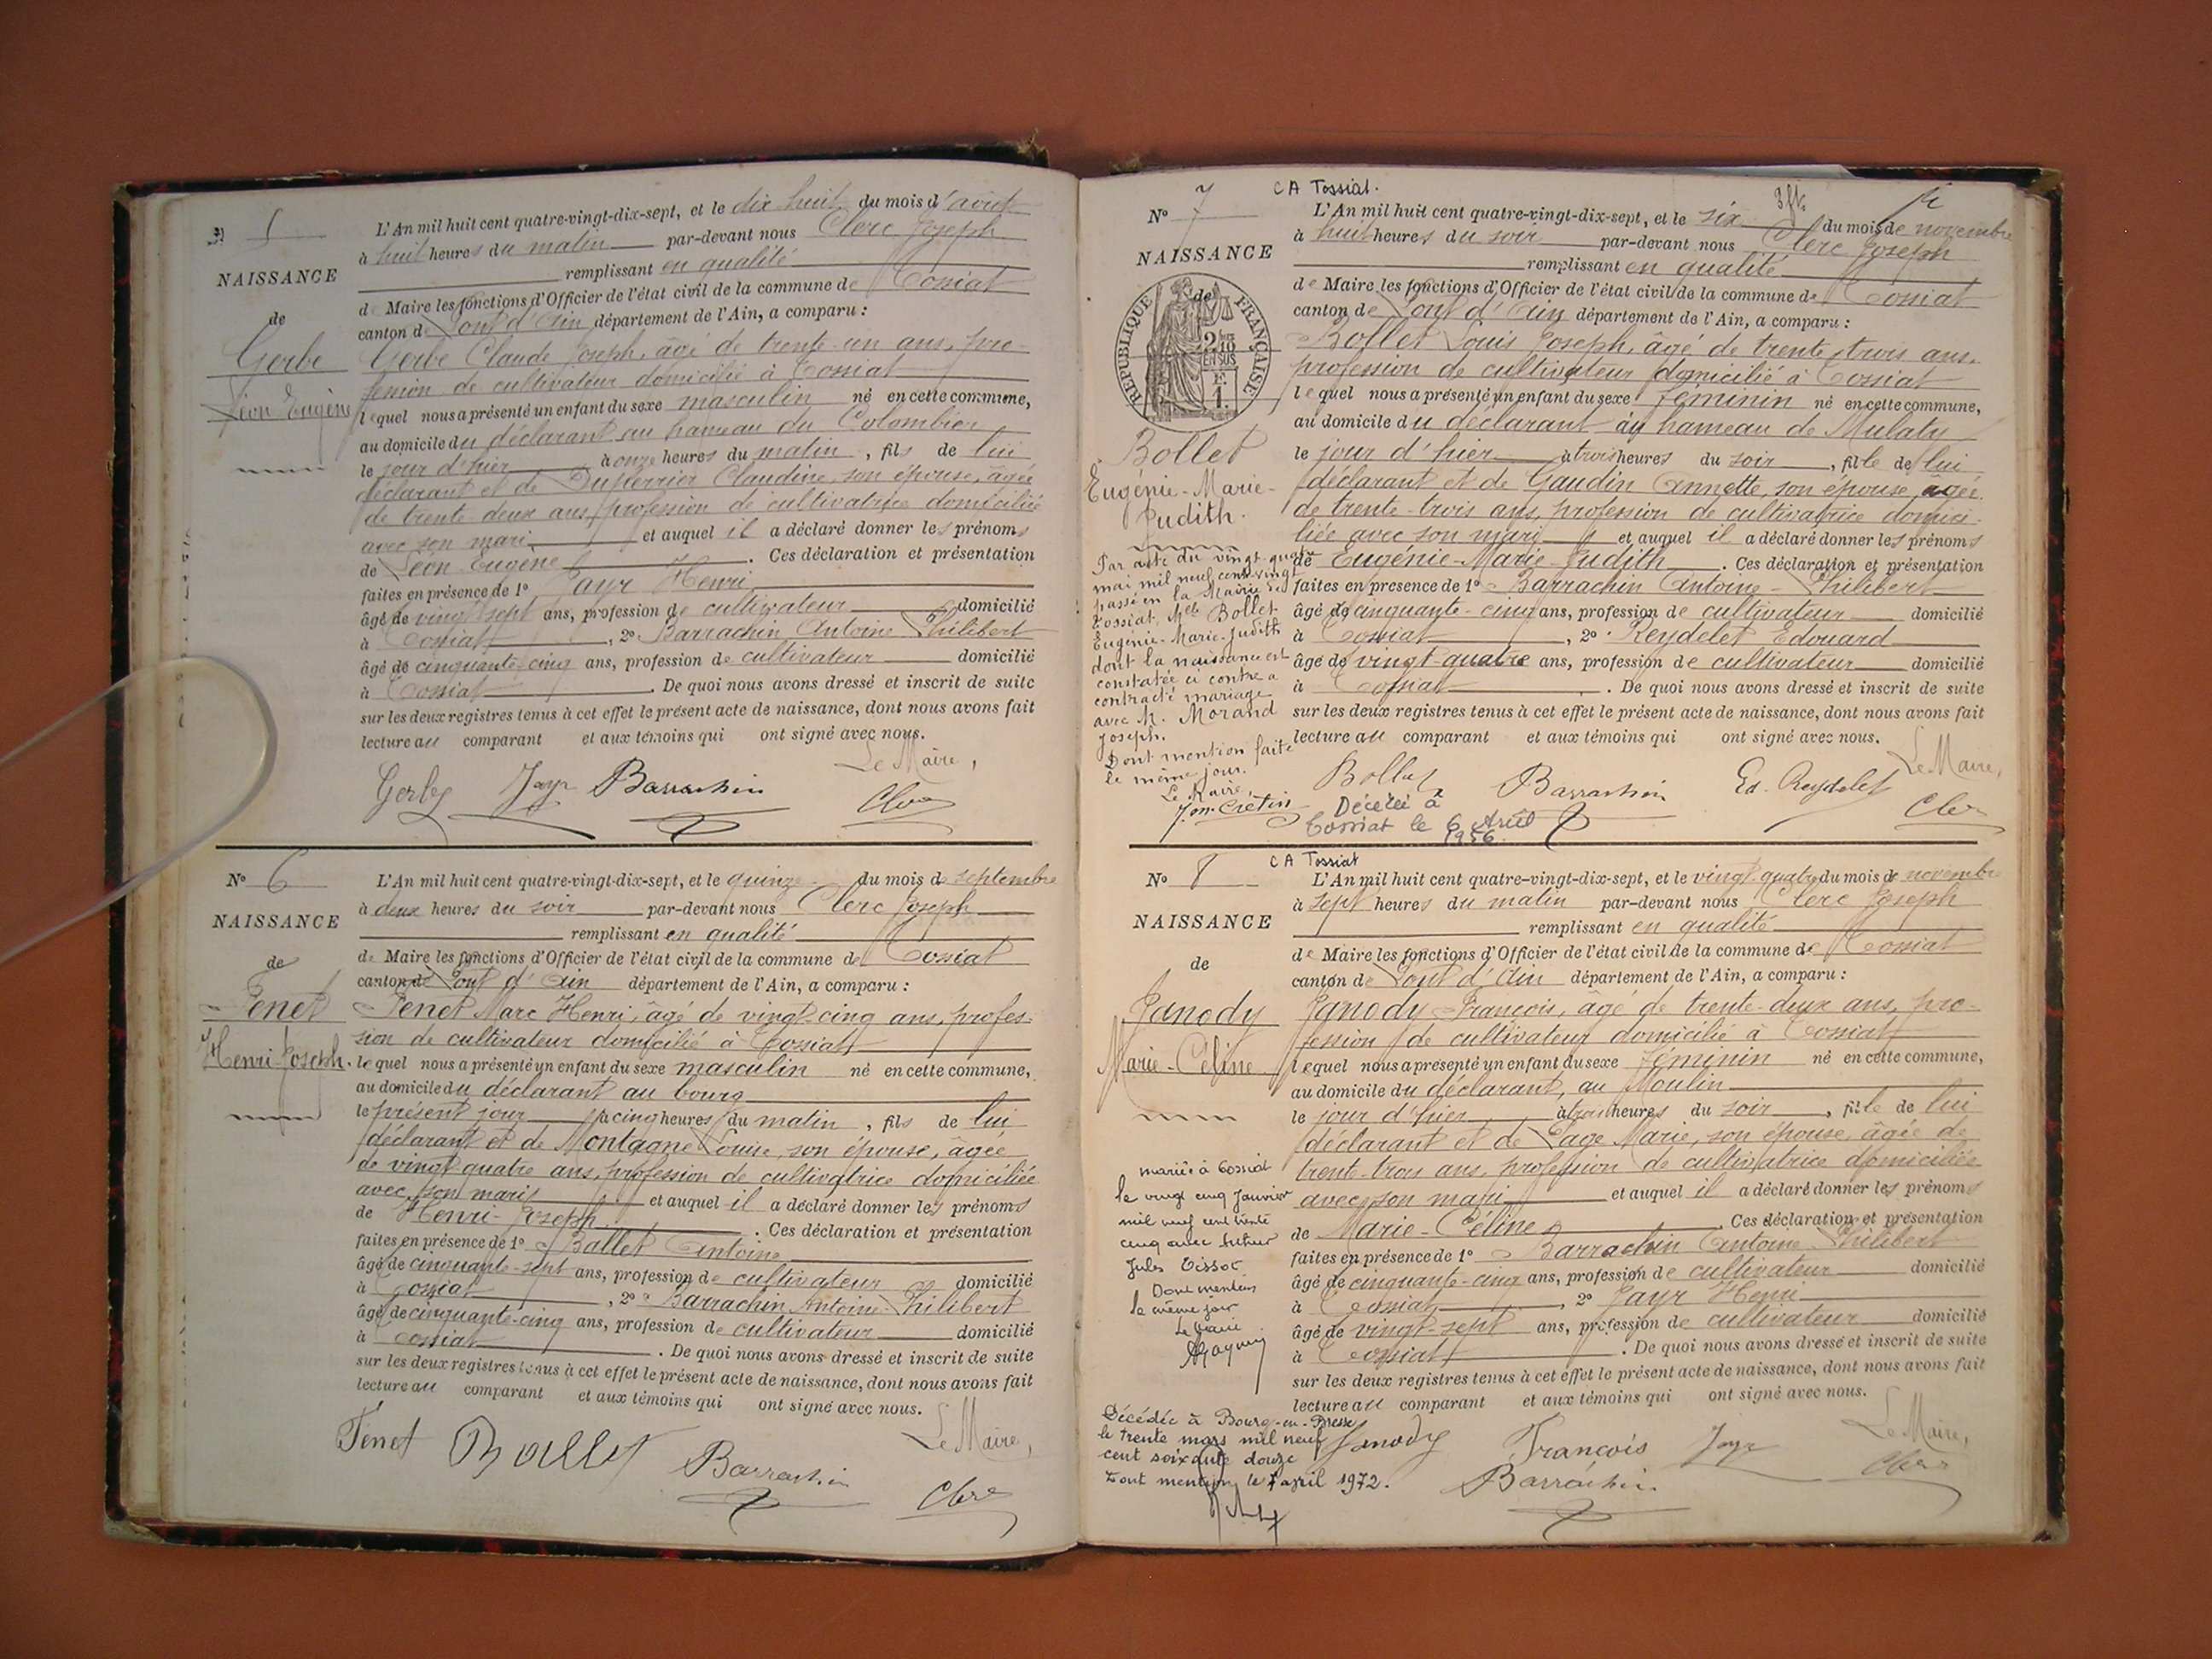 N° 5
NAISSANCE
de
Gerbe
Léon Eugène
L'An mil huit cent quatre-vingt-dix-sept, et le dix huit du mois d'août
à huit heures du matin par-devant nous Clerc Joseph
remplissant en qualité
de Maire les fonctions d'Officier de l'état civil de la commune de Tossiat
canton de Pont d'Ain département de l'Ain, a comparu :
Gerbe Claude Joseph, âgé de trente-un ans, pro-
fession de cultivateur domicilié à Tossiat
lequel nous a présenté un enfant du sexe masculin né en cette commune,
au domicile du déclarant au hameau du Colombier
le jour d'hier à onze heures du matin, fils de lui
déclarant et de Duperrier Claudine, son épouse, âgée
de trente-deux ans, profession de cultivatrice domiciliée
avec son mari et auquel il a déclaré donner les prénoms
de Léon Eugène. Ces déclaration et présentation
faites en présence de 1° Jayr Henri
âgé de vingt sept ans, profession de cultivateur domicilié
à Tossiat, 2° Barrachin Antoine Philibert
âgé de cinquante-cinq ans, profession de cultivateur domicilié
à Tossiat. De quoi nous avons dressé et inscrit de suite
sur les deux registres tenus à cet effet le présent acte de naissance, dont nous avons fait
lecture au comparant et aux témoins qui ont signé avec nous.
Le Maire,
Gerbe Jayr Barrachin Clerc
N° 6
NAISSANCE
de
Fenet
Henri Joseph.
L'An mil huit cent quatre-vingt-dix-sept, et le quinze du mois de septembre
à deux heures du soir par-devant nous Clerc Joseph
remplissant en qualité
de Maire les fonctions d'Officier de l'état civil de la commune de Tossiat
canton de Pont d'Ain département de l'Ain, a comparu :
Fenet Marc Henri, âgé de vingt-cinq ans, profes-
sion de cultivateur domicilié à Tossiat
lequel nous a présenté un enfant du sexe masculin né en cette commune,
au domicile du déclarant au bourg
le présent jour à cinq heures du matin, fils de lui
déclarant et de Montagne Louise, son épouse, âgée
de vingt quatre ans, profession de cultivatrice domiciliée
avec son mari et auquel il a déclaré donner les prénoms
de Henri-Joseph. Ces déclaration et présentation
faites en présence de 1° Ballet Antoine
âgé de cinquante-sept ans, profession de cultivateur domicilié
à Tossiat, 2° Barrachin Antoine-Philibert
âgé de cinquante-cinq ans, profession de cultivateur domicilié
à Tossiat. De quoi nous avons dressé et inscrit de suite
sur les deux registres tenus à cet effet le présent acte de naissance, dont nous avons fait
lecture au comparant et aux témoins qui ont signé avec nous.
Le Maire,
Fenet Ballet Barrachin Clerc
C A Tossiat.
N° 7
NAISSANCE
de
RÉPUBLIQUE FRANÇAISE
2/10 EN SUS
F. 1.
Bollet
Eugénie-Marie-
Judith.
Par acte du vingt-quatre
mai mil neuf cent vingt
passé en la Mairie de
Tossiat, Melle Bollet
Eugénie-Marie-Judith
dont la naissance est
constatée ci contre a
contracté mariage
avec M. Morand
Joseph.
Dont mention faite
le même jour.
Le Maire,
L'An mil huit cent quatre-vingt-dix-sept, et le six du mois de novembre
à huit heures du soir par-devant nous Clerc Joseph
remplissant en qualité
de Maire les fonctions d'Officier de l'état civil de la commune de Tossiat
canton de Pont d'Ain département de l'Ain, a comparu :
Bollet Louis Joseph, âgé de trente-trois ans,
profession de cultivateur domicilié à Tossiat
lequel nous a présenté un enfant du sexe féminin né en cette commune,
au domicile du déclarant au hameau de Mulaty
le jour d'hier à trois heures du soir, fille de lui
déclarant et de Gaudin Annette, son épouse, âgée
de trente-trois ans, profession de cultivatrice domici-
liée avec son mari et auquel il a déclaré donner les prénoms
de Eugénie-Marie-Judith. Ces déclaration et présentation
faites en présence de 1° Barrachin Antoine-Philibert
âgé de cinquante-cinq ans, profession de cultivateur domicilié
à Tossiat, 2° Reydelet Edouard
âgé de vingt-quatre ans, profession de cultivateur domicilié
à Tossiat. De quoi nous avons dressé et inscrit de suite
sur les deux registres tenus à cet effet le présent acte de naissance, dont nous avons fait
lecture au comparant et aux témoins qui ont signé avec nous.
Le Maire,
Bollet Barrachin Ed. Reydelet Clerc
Décédée à
Tossiat le 6 Avril
1956.
C A Tossiat
N° 8
NAISSANCE
de
Janody
Marie-Céline
mariée à Tossiat
le vingt cinq Janvier
mil neuf cent trente
cinq avec
Jules Tissot
Dont mention
le même jour
Le Maire
Décédée à Bourg-en-Bresse
le trente mars mil neuf
cent soixante douze
Dont mention le 7 avril 1972.
L'An mil huit cent quatre-vingt-dix-sept, et le vingt-quatre du mois de novembre
à sept heures du matin par-devant nous Clerc Joseph
remplissant en qualité
de Maire les fonctions d'Officier de l'état civil de la commune de Tossiat
canton de Pont d'Ain département de l'Ain, a comparu :
Janody François, âgé de trente-deux ans, pro-
fession de cultivateur domicilié à Tossiat
lequel nous a présenté un enfant du sexe féminin né en cette commune,
au domicile du déclarant, au Moulin
le jour d'hier à trois heures du soir, fille de lui
déclarant et de Page Marie, son épouse, âgée de
trente-trois ans, profession de cultivatrice domiciliée
avec son mari et auquel il a déclaré donner les prénoms
de Marie-Céline. Ces déclaration et présentation
faites en présence de 1° Barrachin Antoine-Philibert
âgé de cinquante-cinq ans, profession de cultivateur domicilié
à Tossiat, 2° Jayr Henri
âgé de vingt-sept ans, profession de cultivateur domicilié
à Tossiat. De quoi nous avons dressé et inscrit de suite
sur les deux registres tenus à cet effet le présent acte de naissance, dont nous avons fait
lecture au comparant et aux témoins qui ont signé avec nous.
Le Maire,
Janody François Jayr Clerc
Barrachin